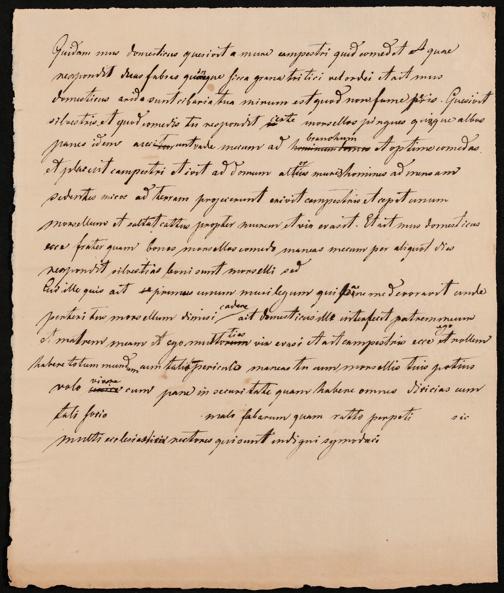 Quidam mus domesticus quesivit a mure campestri quid comedet At quae
respondit duas fabas quinque sicca grana tritici vel ordei et ait mus
domesticus arida sunt cibaria tua mirum est quod non fame peris. Quesivit
silvestris et quid comedis tu respondit certe morsellos pingues quinque albus
panes idem mecum ad brandium et optime comedas
Et placuit campestri et ivit ad domum altius munshominus ad mensam
sedentes micas ad terram projecerunt exivit campestris et cepit unum
morsellum et saltat cattus propter murem et vix evasit. Et ait mus domesticus
ecce frater quam bonos morsellos comedo maneas mecum per aliquot dies
respondit silvestris boni sunt morselli sed
Cui ille quis ait premus unum murilegum qui fere me devoravit unde
perteritus morsellum dimisi cadere ait domesticus ille interfecit patrem meum
et matrem meam et ego multotias vix evasi et ait campestris ecce ego et nollem
habere totum mundum cum tali periculo maneas tu cum morsellis tuis potius
volo vivere cum pane in securitate quam habere omnes divicias cum
tali socio malo fabarum quam ratto perpeti sic
multi ecclesiastici rectores qui sunt indigni symodaci